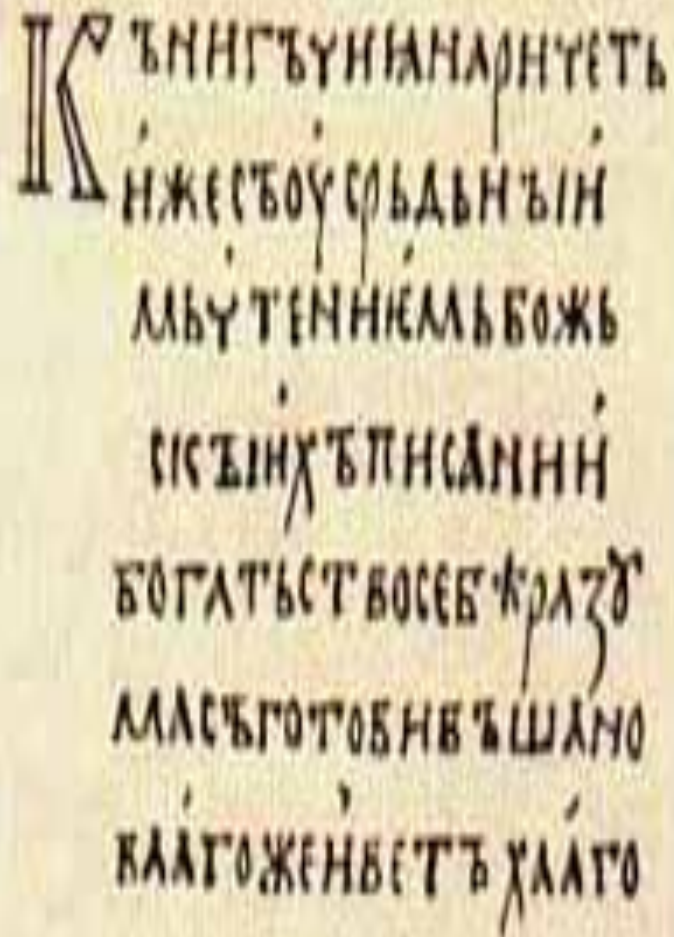 Кънигъчиꙗнаричеть
и́жесъоу́срьдьнъіи́
мьч́тениѥ́мьбожь
скъіи́хъписании́
богатьствосебѣразꙋ
масъготовивъшано
ваа́гожеи́ветъхаа́го